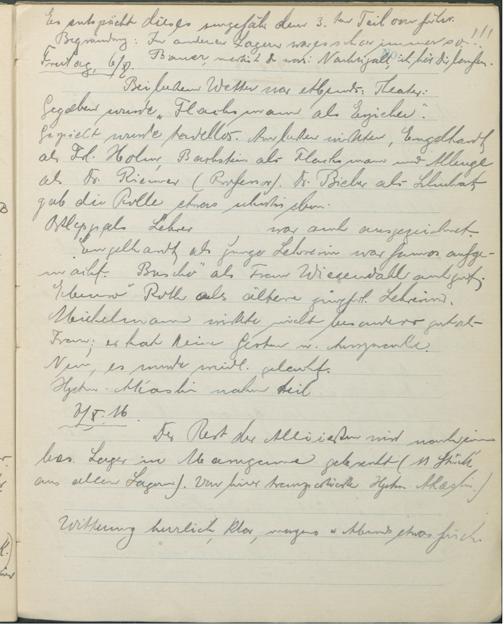 Es entspricht dieses ungefähr dem 3. ten Teil von früh.
Begründung: In anderen Lagern wäre es schon immer so. !!!
Freitag, 6/X. Bauer, merkst du was: Nachtigall, ich hör dir laufen.
Bei hohem Wetter war abends Theater:
Gegeben wurde „Flachsmann als Erzieher“.
Gespielt wurde tadellos. Am besten wirkten, Engelhardt
als Frl. Holm, Bachstein als Flachsmann und
als Dr. Riemer (Professor). Dr. Bieber als Schulrat
gab die Rolle etwas
als Lehrer war auch ausgezeichnet
Engelhardt als junge Lehrerin war famos aufge-
macht. Busch als Frau Wiegendahl auch gut,
Ebenso Roth als ältere jüngfrl. Lehrerin.
Michelmann wirkte nicht besonders gut als
Frau; er hat keine Gesten u. Aussprache.
Nein, es wurde viel gelacht.
Hptm. Akashi nahm teil
7/X. 16.
Der Rest der Alliierten wird nach einem
bes. Lager in gebracht (11 Stück
aus allen Lagern). Von hier transportierte Hptm. Akashi
Witterung herrlich, klar, morgens u. Abends etwas frisch.